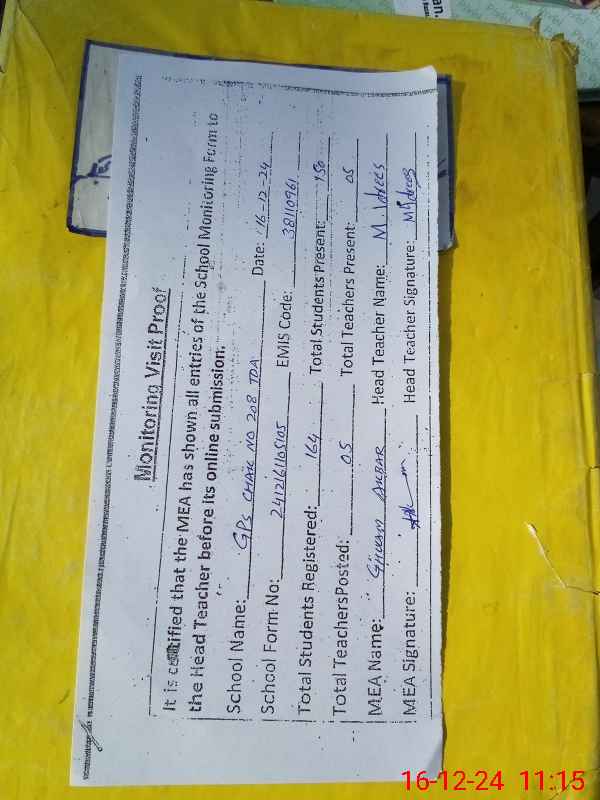 Monitoring Visit Proof
It is certified that the MEA has shown all entries of the School Monitoring Form to
the Head Teacher before its online submission.
School Name: GPS CHAK NO 208 TDA Date: 16-12-24
School Form No: 2412161105105 EMIS Code: 38110961
Total Students Registered: 164 Total Students Present: 150
Total TeachersPosted: 05 Total Teachers Present: 05
MEA Name: GHULAM AKBAR Head Teacher Name: M. Idrees
MEA Signature: Head Teacher Signature: M Idrees
16-12-24 11:15